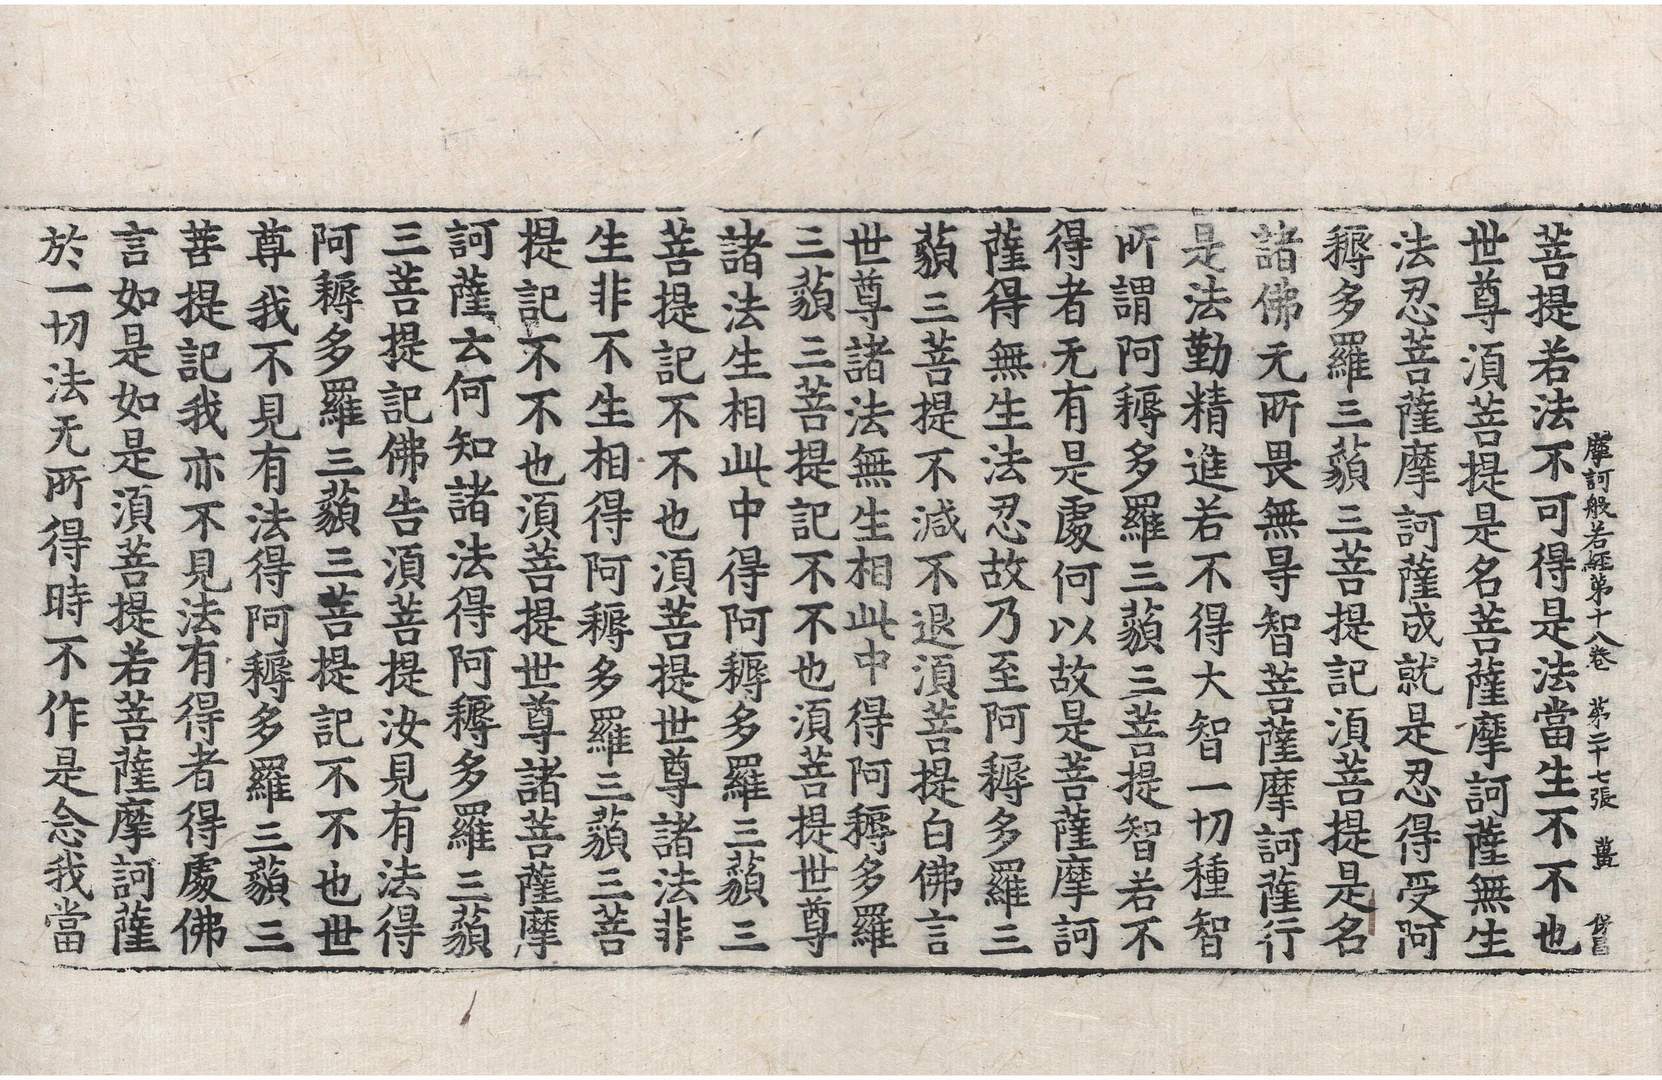 摩訶般若經第十八卷　第二十七張　薑
菩提若法不可得是法當生不不也
世尊湏菩提是名菩薩摩訶薩無生
法忍菩薩摩訶薩成就是忍得受阿
耨多羅三藐三菩提記湏菩提是名
諸佛无所畏無㝵智菩薩摩訶薩行
是法勤精進若不得大智一切種智
所謂阿耨多羅三藐三菩提智若不
得者无有是處何以故是菩薩摩訶
薩得無生法忍故乃至阿耨多羅三
藐三菩提不減不退湏菩提白佛言
世尊諸法無生相此中得阿耨多羅
三藐三菩提記不不也湏菩提世尊
諸法生相此中得阿耨多羅三藐三
菩提記不不也湏菩提世尊諸法非
生非不生相得阿耨多羅三藐三菩
提記不不也湏菩提世尊諸菩薩摩
訶薩云何知諸法得阿耨多羅三藐
三菩提記佛告湏菩提汝見有法得
阿耨多羅三藐三菩提記不不也世
尊我不見有法得阿耨多羅三藐三
菩提記我亦不見法有得者得處佛
言如是如是湏菩提若菩薩摩訶薩
於一切法无所得時不作是念我當